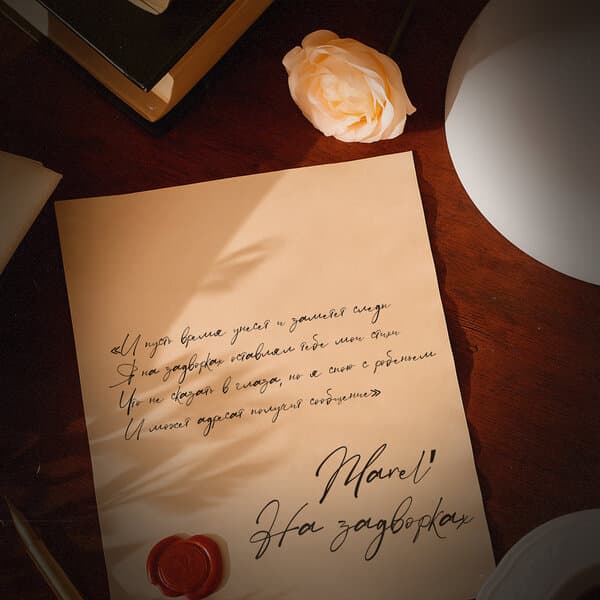 «И пусть время унесет и заметет следы
Я на задворках оставлял тебе мои стихи
Что не сказать в глаза, но я спою с
И может адресат получит сообщение»
Marel'
На задворках